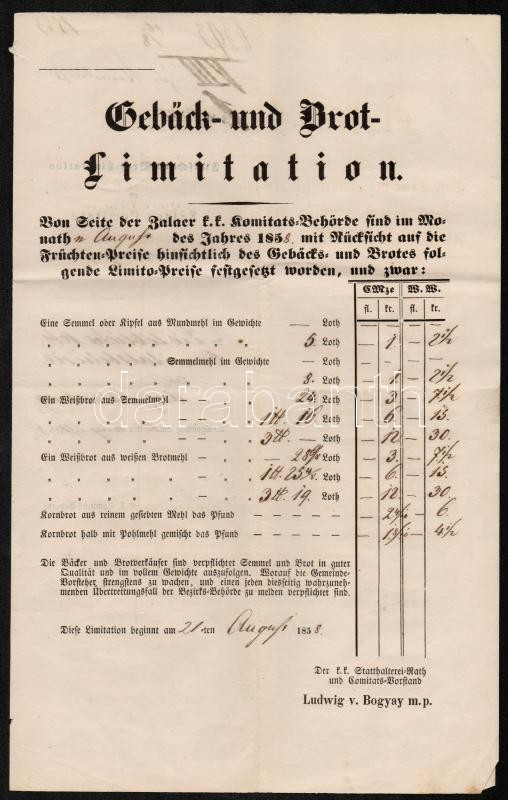 Gebäck- und Brot-
Limitation.
Von Seite der Zalaer k.k. Komitats-Behörde sind im Mo-
nathe August des Jahres 1858. mit Rücksicht auf die
Früchten-Preise hinsichtlich des Gebäcks- und Brotes fol-
gende Limito-Preise festgesetzt worden, und zwar:
CMze W. W.
fl. kr. fl. kr.
Eine Semmel oder Kipfel aus Mundmehl im Gewichte — Loth — — — —
„ „ „ „ „ „ „ „ 5. Loth — 1 — 2 1/2
„ „ „ Semmelmehl im Gewichte — Loth — — — —
„ „ „ „ „ „ „ „ 8. Loth — 1 — 2 1/2
Ein Weißbrot aus Semmelmehl — — 24. Loth — 3 — 7 1/2
„ „ „ „ — 1 tt. 16 Loth — 6 — 15.
„ „ „ „ — 3 tt. — Loth — 12 — 30.
Ein Weißbrot aus weißen Brotmehl — — Loth — 3 — 7 1/2
„ „ „ „ „ — 1 tt. Loth — 6 — 15
„ „ „ „ „ — 3 tt. 19. Loth — 12 — 30
Kornbrot aus reinem gesiebten Mehl das Pfund — — — — — — 6.
Kornbrot halb mit Pohlmehl gemischt das Pfund — — — — — — 4 1/2
Die Bäcker und Brotverkäufer sind verpflichtet Semmel und Brot in guter
Qualität und im vollem Gewichte auszufolgen. Worauf die Gemeinde-
Vorsteher strengstens zu wachen, und einen jeden diesseitig wahrzuneh-
menden Übertrettungsfall der Bezirks-Behörde zu melden verpflichtet sind.
Diese Limitation beginnt am 21-ten August 1858.
Der k. k. Statthalterei-Rath
und Comitats-Vorstand
Ludwig v. Bogyay m. p.
darabanth